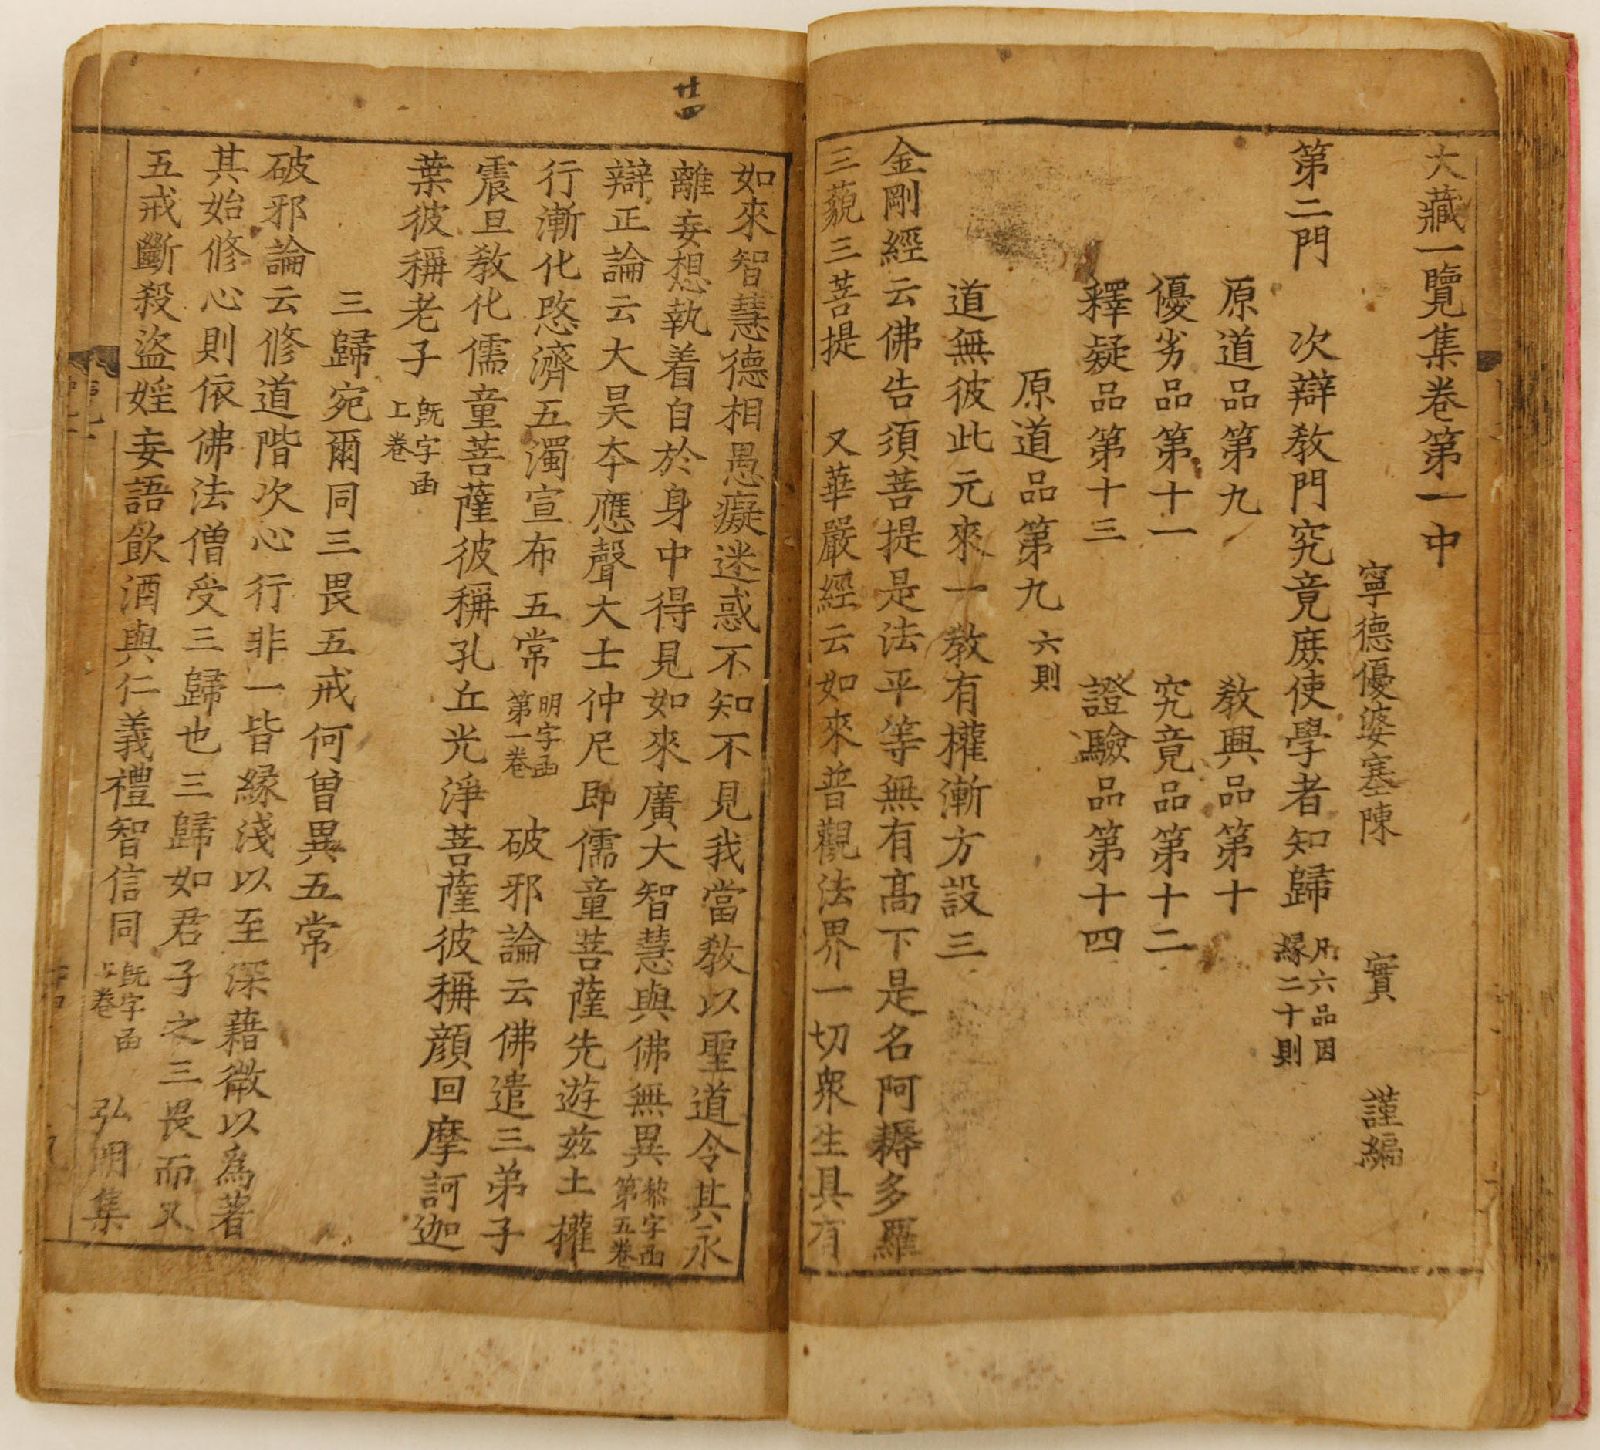 大藏一覽集卷第一中
寧德優婆塞陳 實 謹編
第二門 次辯教門究竟庻使學者知歸 凡六品因緣二十則
原道品第九 教興品第十
優劣品第十一 究竟品第十二
釋疑品第十三 證驗品第十四
原道品第九 六則
道無彼此元來一教有權漸方設三
金剛經云佛告須菩提是法平等無有高下是名阿耨多羅
三藐三菩提 又華嚴經云如來普觀法界一切衆生具有
如來智慧德相愚癡迷惑不知不見我當教以聖道令其永
離妄想執着自於身中得見如來廣大智慧與佛無異 第五卷
辯正論云大昊夲應聲大士仲尼即儒童菩薩先遊茲土權
行漸化愍濟五濁宣布五常 明字函第一卷 破邪論云佛遣三弟子
震旦教化儒童菩薩彼稱孔丘光淨菩薩彼稱顔回摩訶迦
葉彼稱老子 旣字函上卷
三歸宛爾同三畏五戒何曾異五常
破邪論云修道階次心行非一皆緣淺以至深藉微以爲著
其始修心則依佛法僧受三歸也三歸如君子之三畏而又
五戒斷殺盜婬妄語飲酒與仁義禮智信同 旣字函上卷 弘明集
廿四